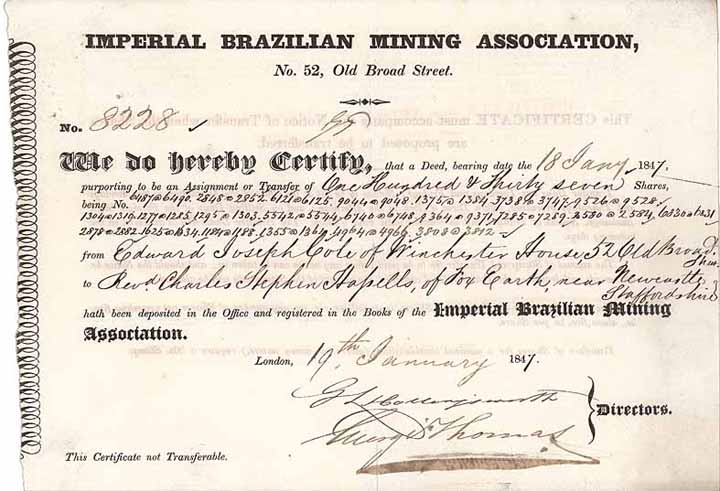 IMPERIAL BRAZILIAN MINING ASSOCIATION,
No. 52, Old Broad Street.
No. 8228
We do hereby Certify, that a Deed, bearing date the 18 Jany 1847.
purporting to be an Assignment or Transfer of One Hundred & Thirty seven Shares,
being No. 6487@6490. 2848@2852. 6121@6125. 9044@9048. 1375@1384. 3738@3747. 9526@9528.
1304@1319. 1277@1285. 1295@1303. 5542@5544. 6740@6748. 9364@9371. 7285@7289. 2580@2584. 6830@6831
2878@2882. 1625@1634. 1184@1188. 1355@1364. 4964@4966. 3808@3812
from Edward Joseph Cole of Winchester House, 52 Old Broad
to Revd. Charles Stephen Hassells, of Fox Earth, near Newcastle,
Staffordshire
hath been deposited in the Office and registered in the Books of the Imperial Brazilian Mining
Association.
London, 19th January 1847.
Directors.
George Thomas
This Certificate not Transferable.